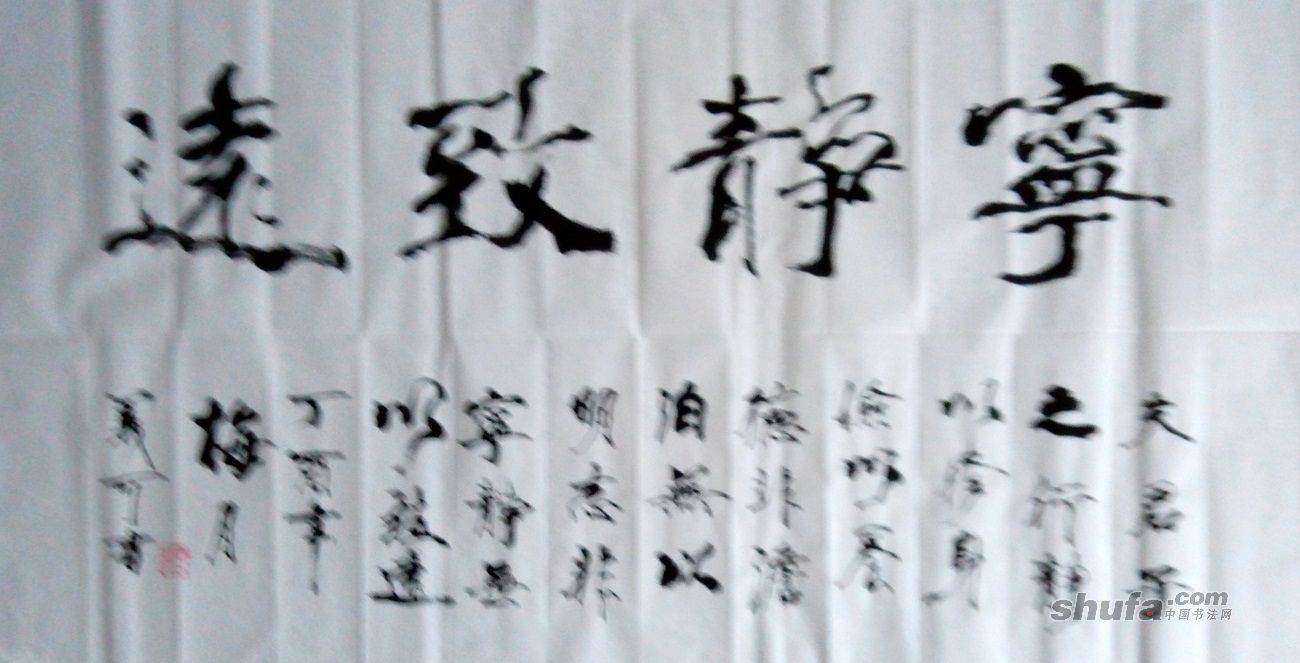 寧靜致遠
夫君子
之行靜
以修身
儉以養
德非澹
泊無以
明志非
寧靜無
以致遠
丁酉年
梅月
可書
shufa.com
中国书法网